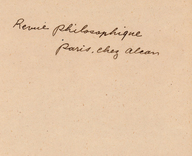 Revue philosophique
Paris, chez Alcan